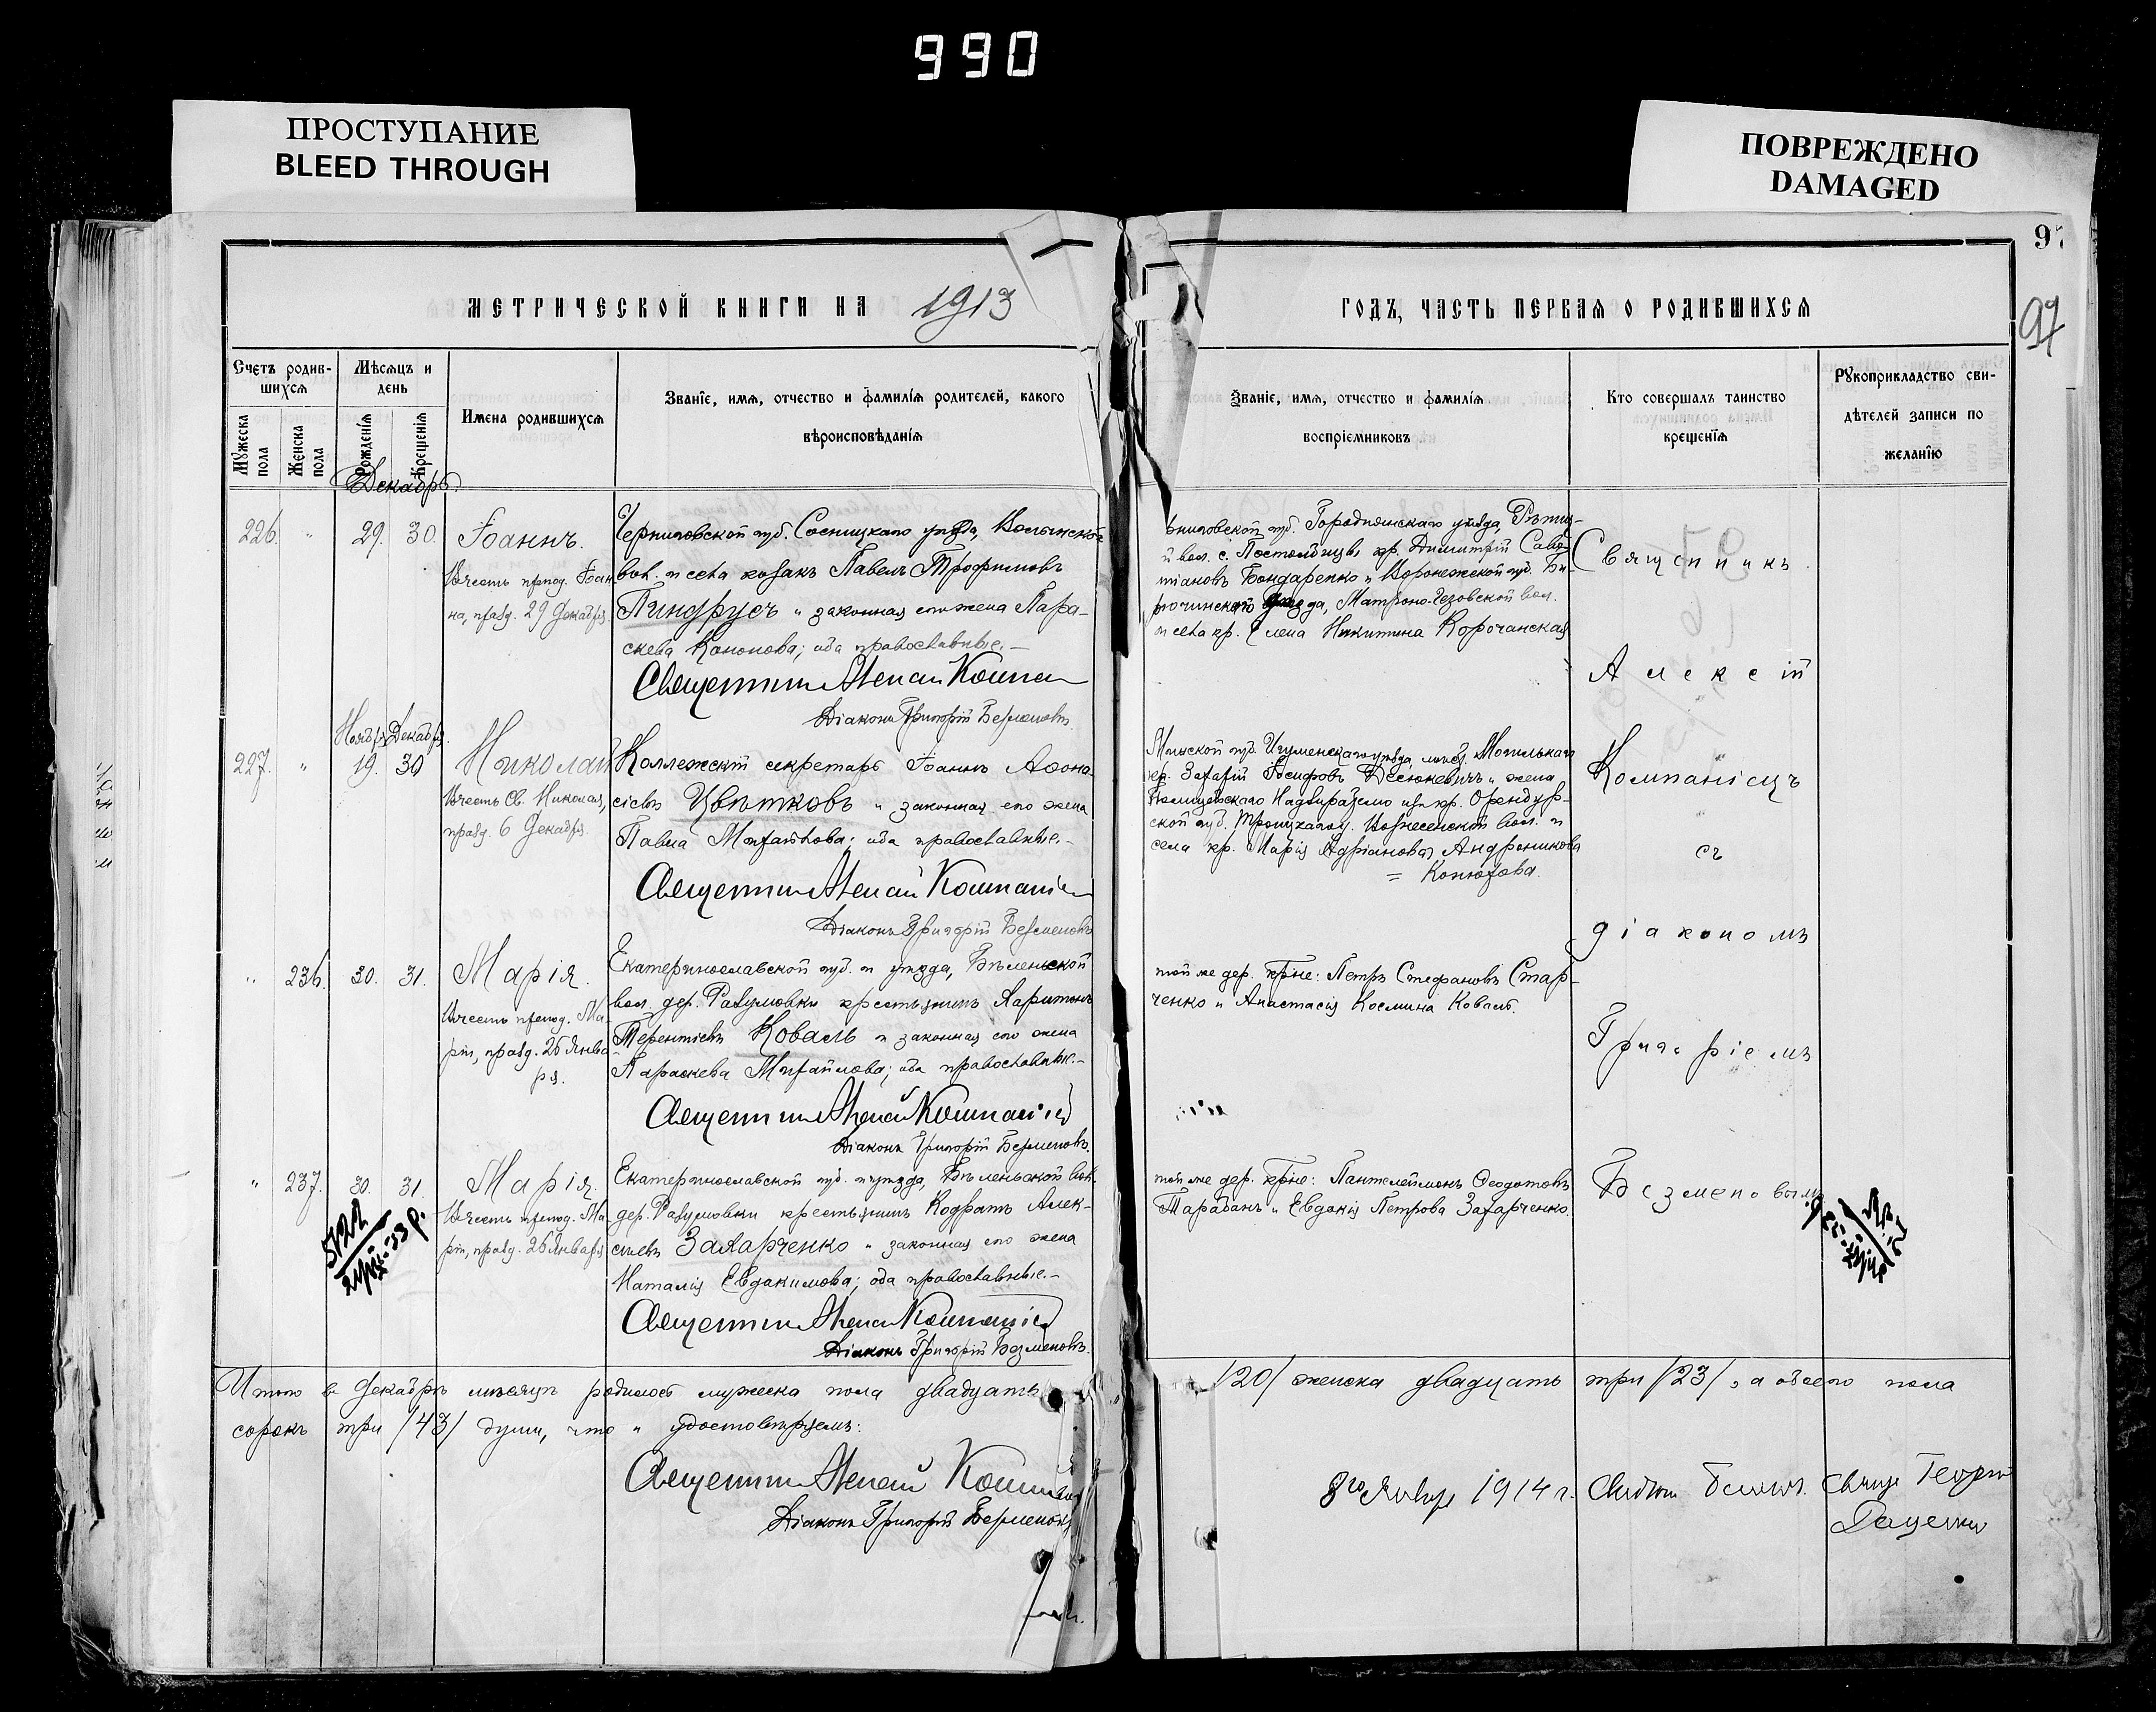 990
ПРОСТУПАНИЕ
BLEED THROUGH
ПОВРЕЖДЕНО
DAMAGED
97
97
МЕТРИЧЕСКОЙ КНИГИ НА 1913
ГОДЪ, ЧАСТЬ ПЕРВАЯ О РОДИВШИХСЯ
Счетъ родив-
шихся
Мужеска пола
Женска пола
Мѣсяцъ и
день
Рожденія
Крещенія
Имена родившихся
Званіе, имя, отчество и фамилія родителей, какого
вѣроисповѣданія
Званіе, имя, отчество и фамилія
воспріемниковъ
Кто совершалъ таинство
крещенія
Рукоприкладство сви-
дѣтелей записи по
желанію
Декабрь.
226. " 29. 30. Іоаннъ.
Въ честь препод. Іоан
на, празд. 29 Декабря.
Черниговской губ. Сосницкаго уѣзда, Волынской
вол. и села козакъ Павелъ Трофимовъ
Пиндрусъ и законная его жена Пара-
скева Кононова; оба православные.-
Священникъ Алексей Компан
Діаконъ Григорій Безменовъ
рниговской губ. Городнянскаго уѣзда,
й вол. с. кр. Димитрій Сава-
тіановъ Бондаренко и Воронежской губ. Би-
рючинскаго уѣзда, Матроно-Гезовской вол.
и села кр. Елена Никитина Корочанская
Священникъ
Алексій
Компаніецъ
съ
діакономъ
Григоріемъ
Безменовымъ
Ноябр. Декабр.
227. " 19. 30 Николай
Въ честь Св. Николая,
празд. 6 Декабря.
Коллежскій секретарь Іоаннъ Аѳана-
сіевъ Цвѣтковъ и законная его жена
Павла Михайлова; оба православные.-
Священникъ Алексей Компаніец
Діаконъ Григорій Безменовъ
Минской губ. Игуменскаго уѣзда,
кр. Захарій Іосифовъ и жена
Полицейскаго Надзирателя изъ кр. Оренбур-
ской губ. Троицкаго у. Вознесенской вол. и
села кр. Марія Адріанова Андроникова
= Конюхова.
" 236. 30. 31. Марія.
Въ честь препод. Ма-
ріи, празд. 26 Янва
ря.
Екатеринославской губ. и уѣзда, Бѣленьской
вол. дер. Разумовки крестьянинъ Харитонъ
Терентіевъ Коваль и законная его жена
Параскева Михайлова; оба православные.-
Священникъ Алексей Компаніец
Діаконъ Григорій Безменовъ.
той же дер. кр-не: Петръ Стефановъ Стар-
ченко и Анастасія Космина Коваль.
" 237. 30. 31. Марія.
Въ честь препод. Ма-
ріи, празд. 26 Января
Екатеринославской губ. и уѣзда, Бѣленьской вол.
дер. Разумовки крестьянинъ Кодратъ Алек-
сіевъ Захарченко и законная его жена
Наталія Евдокимова; оба православные.-
Священникъ Алексей Компаніец
Діаконъ Григорій Безменовъ.
той же дер. кр-не: Пантелеймонъ Ѳеодотовъ
Тарабанъ и Евдокія Петрова Захарченко.
Итого въ Декабрѣ мѣсяцѣ родилось мужеска пола двадцать /20/ женска двадцать три /23/, а обоего пола
сорокъ три /43/ души, что и удостовѣряемъ:
Священникъ Алексей Компаніец
Діаконъ Григорій Безменовъ
8го Января 1914 г. Георгій